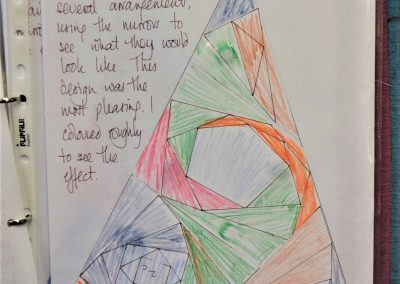 several arrangements,
using the mirrors to
see what they would
look like. This
design was the
most pleasing. I
coloured roughly
to see the
effect.
FLIPFILE